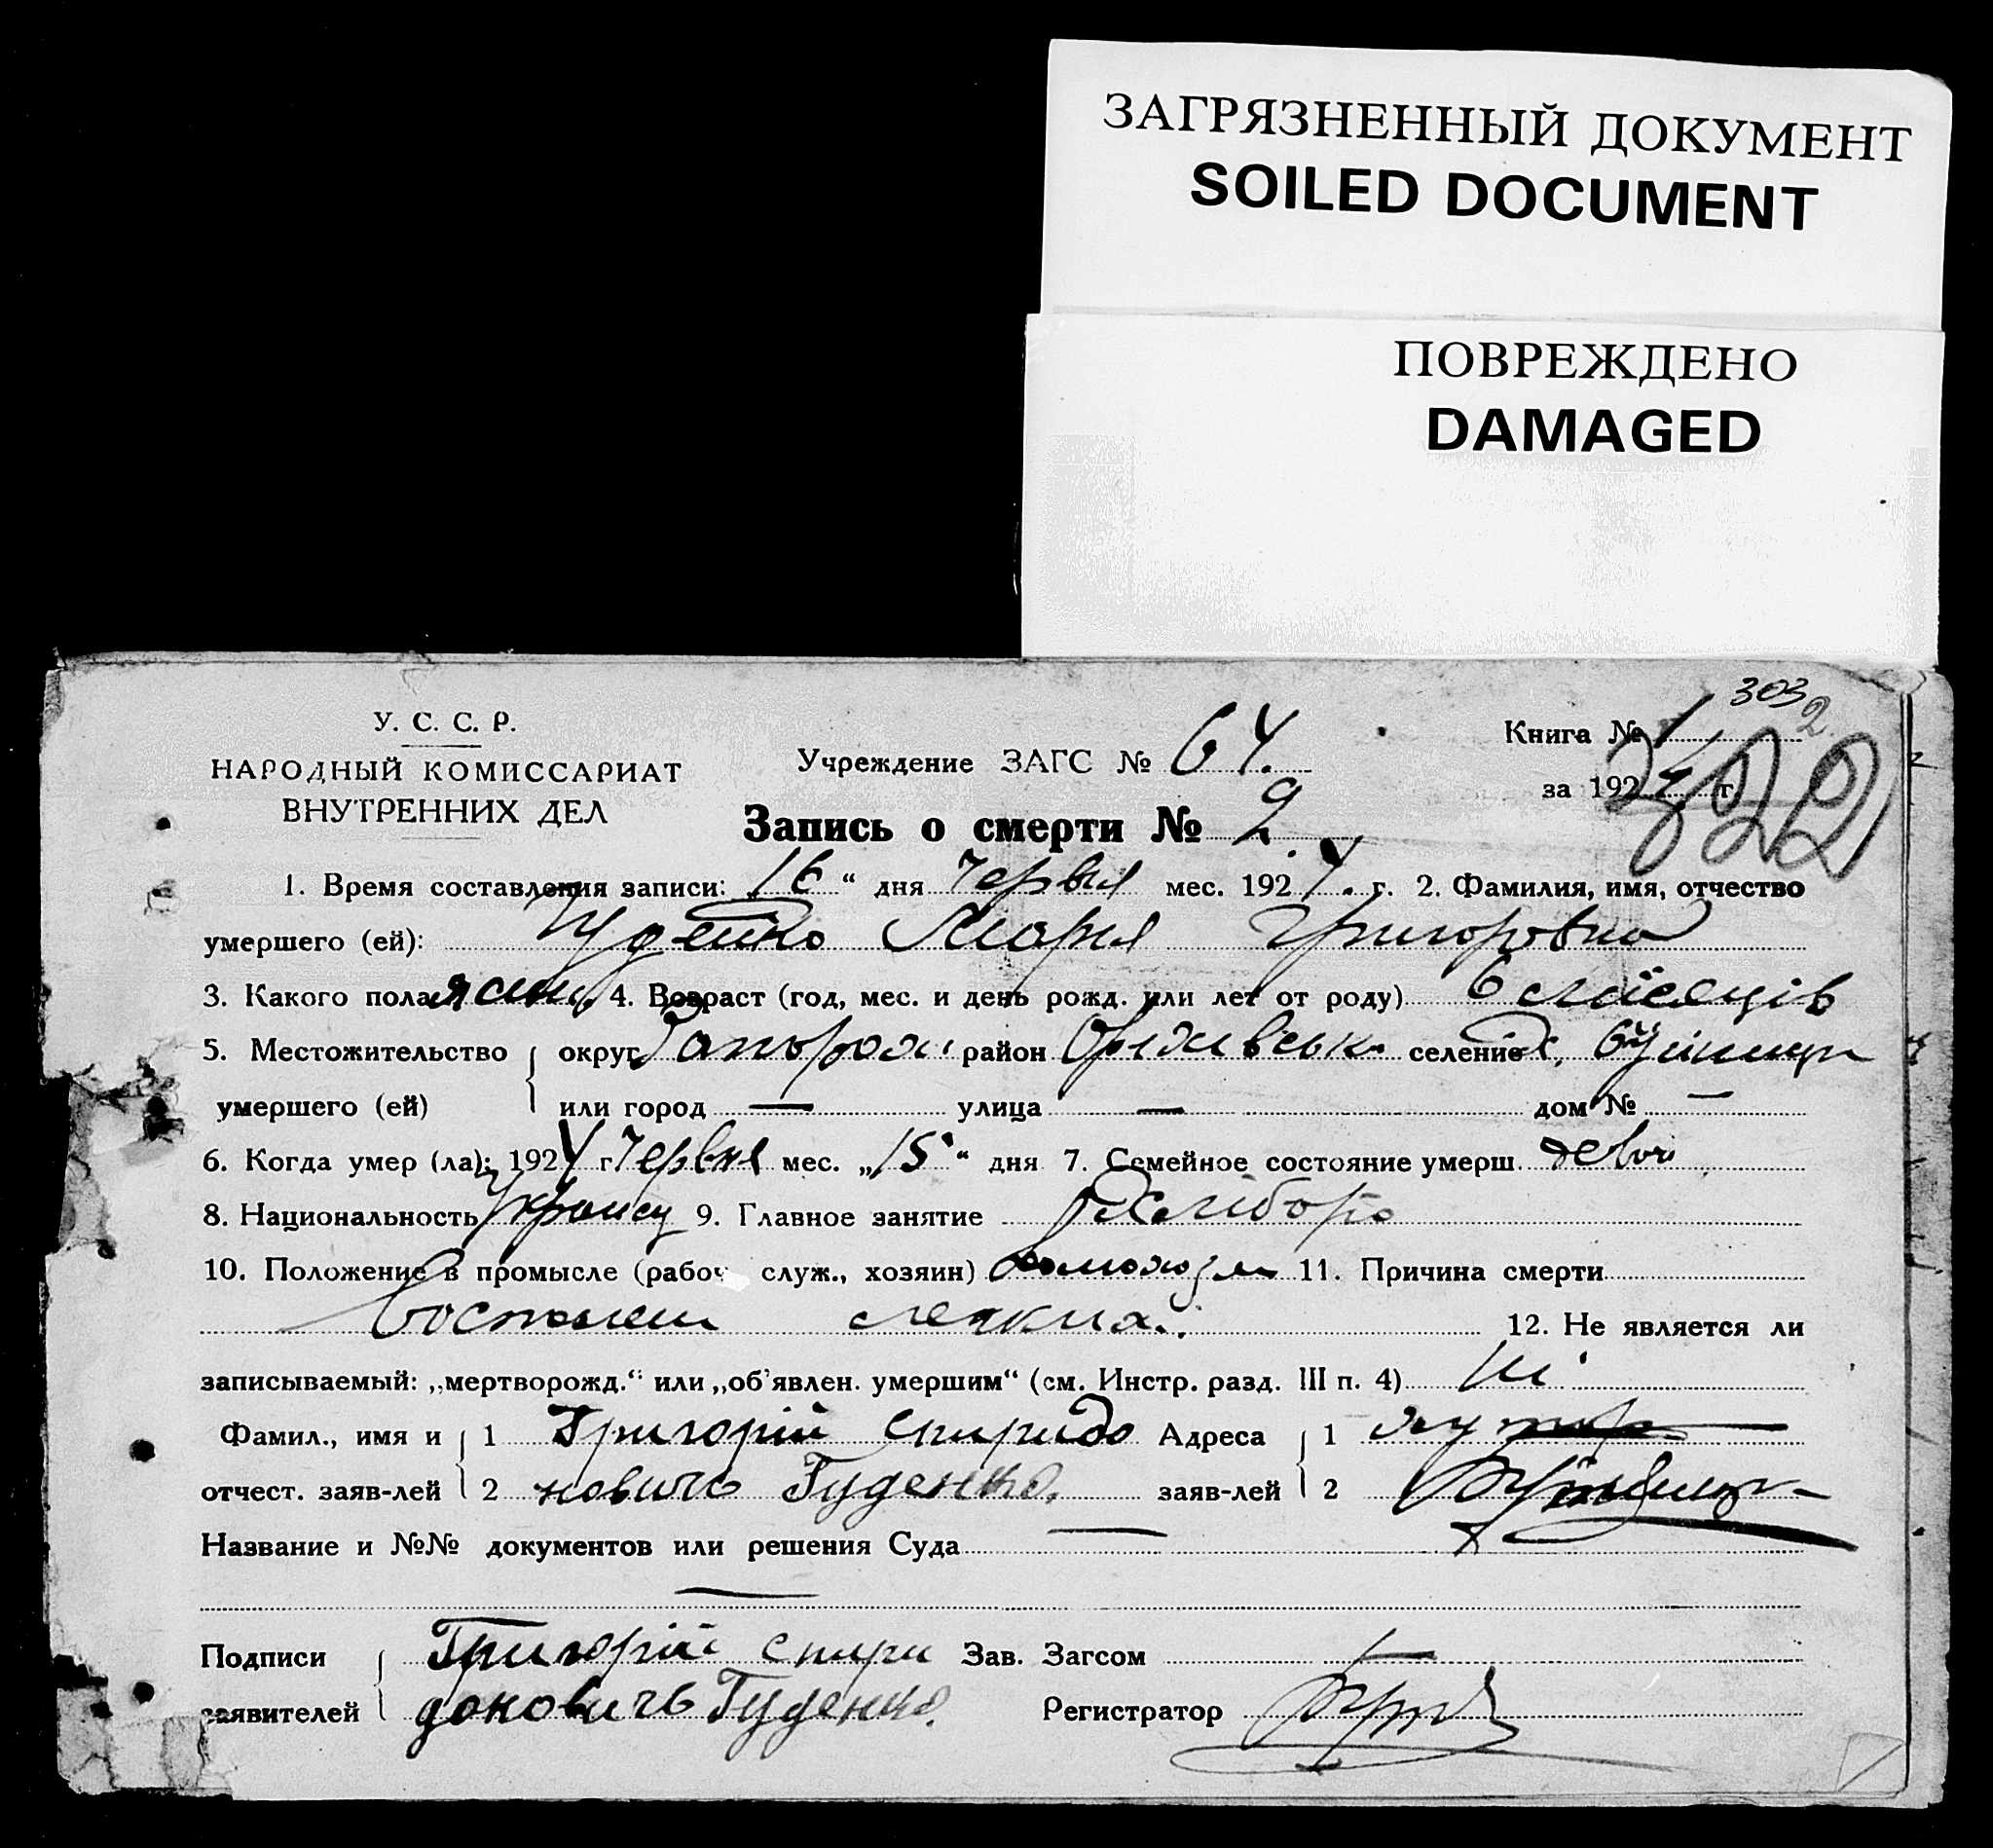 ЗАГРЯЗНЕННЫЙ ДОКУМЕНТ
SOILED DOCUMENT
ПОВРЕЖДЕНО
DAMAGED
303
У. С. С. Р.
НАРОДНЫЙ КОМИССАРИАТ
ВНУТРЕННИХ ДЕЛ
Учреждение ЗАГС № 64.
Книга № 1
за 1924 г.
322
Запись о смерти № 2.
1. Время составления записи: 16 " дня Червня мес. 1924. г. 2. Фамилия, имя, отчество
умершего (ей): Мария Григоровна
3. Какого пола 4. Возраст (год, мес. и день рожд. или лет от роду) 6 місяців
5. Местожительство округ Запорож. район Оріхівськ. селение х.
умершего (ей) или город — улица — дом № —
6. Когда умер (ла): 1924 г. Червня мес. „15" дня 7. Семейное состояние умерш.
8. Национальность Украиц 9. Главное занятие хлібороб
10. Положение в промысле (рабоч служ., хозяин) 11. Причина смерти
12. Не является ли
записываемый: „мертворожд." или „об'явлен. умершим" (см. Инстр. разд. III п. 4) Ні
Фамил., имя и 1 Григорій Спиридо Адреса 1 хутор
отчест. заяв-лей 2 новичь Гуденко. заяв-лей 2
Название и №№ документов или решения Суда —
—
Подписи Григорій Спири Зав. Загсом —
заявителей доновичь Гуденко. Регистратор